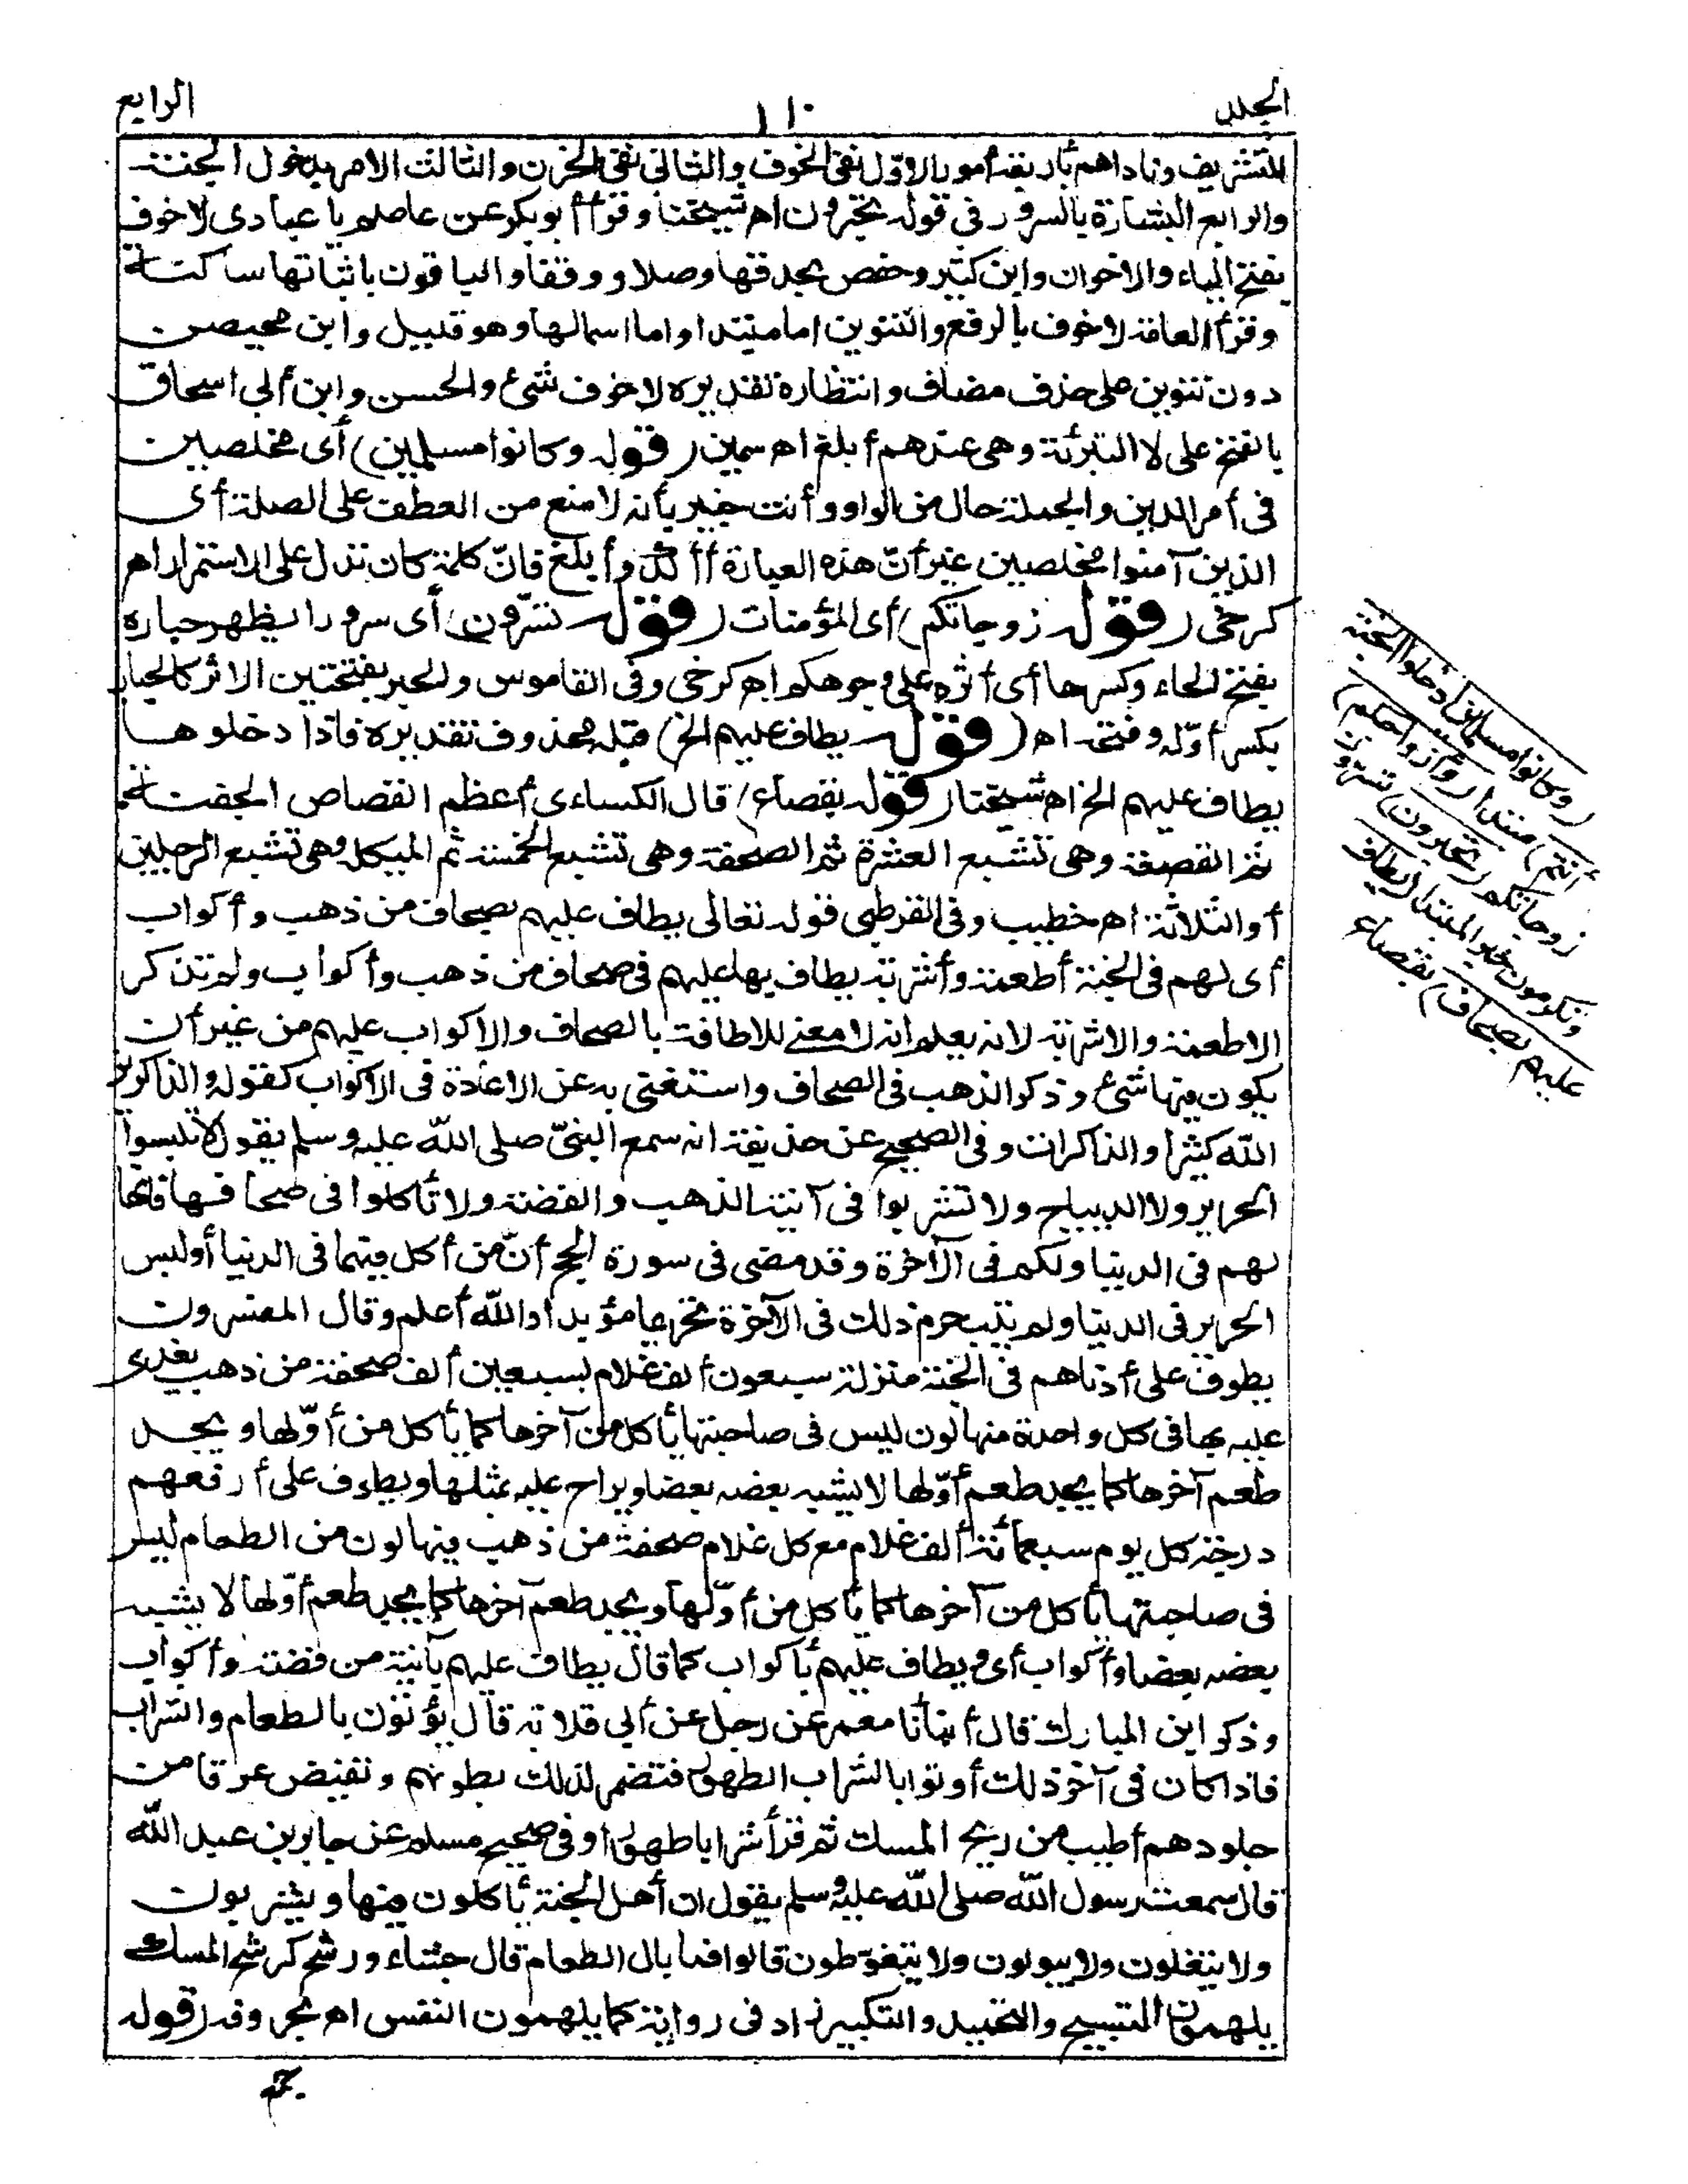 الجلد
١١٠
الرابع
للتشريف وناداهم بأربعة أمور الاول نفي الخوف والثاني نفي الحزن والثالث الامر بدخول الجنة
والرابع البشارة بالسرور في قوله تحبرون اه شيخنا وقرأ أبو بكر عن عاصم يا عبادي لا خوف
بفتح الياء والاخوان وابن كثير وحفص بحذفها وصلا ووقفا والباقون باثباتها ساكنة
وقرأ العامة لا خوف بالرفع والتنوين اما مبتدا واما اسما لها وهو قليل وابن محيصن
دون تنوين على حذف مضاف وانتظاره تقديره لا خوف شئ والحسن وابن أبي اسحاق
بالفتح على لا التبرئة وهي عندهم أبلغ اه سمين (قوله وكانوا مسلمين) أى مخلصين
في أمر الدين والجملة حال من الواو وأنت خبير بأنه لا منع من العطف على الصلة أى
الذين آمنوا مخلصين غير أنّ هذه العبارة آكد وأبلغ فانّ كلمة كان تدل على الاستمرار اه
كرخى (قوله زوجاتكم) أى المؤمنات (قوله تسرّون) أى سرورا يظهر حباره
بفتح الحاء وكسرها أى أثره على وجوهكم اه كرخى وفي القاموس والحبر بفتحتين الاثر كالحبار
بكسر أوّله وفتحه اه (قوله يطاف عليهم الخ) قبله محذوف تقديره فاذا دخلوها
يطاف عليهم الخ اه شيخنا (قوله بقصاع) قال الكساءى أعظم القصاص الجفنة
ثم القصعة وهي تشبع العشرة ثم الصحفة وهي تشبع الخمسة ثم الميكلة وهي تشبع الرجلين
أو الثلاثة اه خطيب وفي القرطبي قوله تعالى يطاف عليهم بصحاف من ذهب وأكواب
أى لهم في الجنة أطعمة وأشربة يطاف بها عليهم في صحاف من ذهب وأكواب ولم تذكر
الاطعمة والاشربة لانه يعلم انه لا معنى للاطافة بالصحاف والاكواب عليهم من غير أن
يكون فيها شئ وذكر الذهب في الصحاف واستغنى به عن الاعادة في الاكواب كقوله والذاكرين
اللّه كثيرا والذاكرات وفي الصحيح عن حذيفة انه سمع النبيّ صلى اللّه عليه وسلم يقول لا تلبسوا
الحرير ولا الديباج ولا تشربوا في آنية الذهب والفضة ولا تأكلوا في صحافها فانها
لهم في الدنيا ولكم في الآخرة وقد مضى في سورة الحج أنّ من أكل فيهما في الدنيا أو لبس
الحرير في الدنيا ولم يتب حرم ذلك في الآخرة تحريما مؤبدا واللّه أعلم وقال المفسرون
يطوف على أدناهم في الجنة منزلة سبعون ألف غلام بسبعين ألف صحفة من ذهب يغدى
عليه بها في كل واحدة منها لون ليس في صاحبتها يأكل من آخرها كما يأكل من أوّلها ويجد
طعم آخرها كما يجد طعم أوّلها لا يشبه بعضه بعضا ويراح عليه بمثلها ويطوف على أرفعهم
درجة كل يوم سبعمائة ألف غلام مع كل غلام صحفة من ذهب فيها لون من الطعام ليس
في صاحبتها يأكل من آخرها كما يأكل من أوّلها ويجد طعم آخرها كما يجد طعم أوّلها لا يشبه
بعضه بعضا وأكواب أى ويطاف عليهم بأكواب كما قال يطاف عليهم بآنية من فضة وأكواب
وذكر ابن المبارك قال أنبأنا معمر عن رجل عن أبي قلابة قال يؤتون بالطعام والشراب
فاذا كان في آخر ذلك أوتوا بالشراب الطهور فتضمر لذلك بطونهم وتفيض عرقا من
جلودهم أطيب من ريح المسك ثم قرأ شرابا طهورا وفي صحيح مسلم عن جابر بن عبد اللّه
قال سمعت رسول اللّه صلى اللّه عليه وسلم يقول ان أهل الجنة يأكلون فيها ويشربون
ولا يتفلون ولا يبولون ولا يتغوّطون قالوا فما بال الطعام قال جشاء ورشح كرشح المسك
يلهمون التسبيح والتحميد والتكبير زاد في رواية كما يلهمون النفس اه بحروفه (قوله
(وكانوا مسلمين) ادخلوا الجنة
أنتم) مبتدا (وأزواجكم)
زوجاتكم (تحبرون) تسرّون
وتكرمون خبر المبتدا (يطاف
عليهم بصحاف) بقصاع